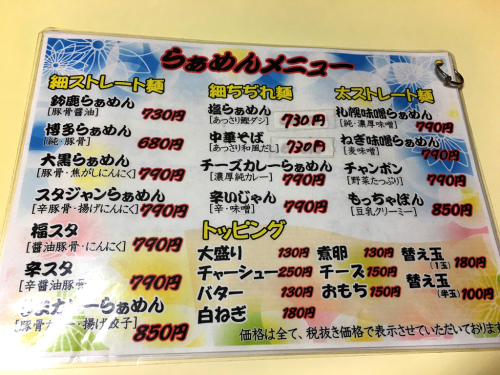 らぁめんメニュー
細ストレート麺
鈴鹿らぁめん
[豚骨醤油] 730円
博多らぁめん
[純・豚骨] 680円
大黒らぁめん
[豚骨・焦がしにんにく] 790円
スタジャンらぁめん
[辛豚骨・揚げにんにく] 790円
福スタ
[醤油豚骨・にんにく] 790円
辛スタ
[辛醤油豚骨 790円
カレーらぁめん
[豚骨カレー・揚げ餃子] 850円
細ちぢれ麺
塩らぁめん
[あっさり鰹ダシ] 730円
中華そば
[あっさり和風だし] 730円
チーズカレーらぁめん
[濃厚純カレー] 790円
辛いじゃん
[辛・味噌] 790円
太ストレート麺
札幌味噌らぁめん
[純・濃厚味噌] 790円
ねぎ味噌らぁめん
[麦味噌] 790円
チャンポン
[野菜たっぷり] 790円
もっちゃぽん
[豆乳クリーミー] 850円
トッピング
大盛り 130円
チャーシュー 250円
バター 130円
白ねぎ 180円
煮卵 130円
チーズ 150円
おもち 150円
替え玉
(1玉) 180円
替え玉
(半玉) 100円
価格は全て、税抜き価格で表示させていただいております